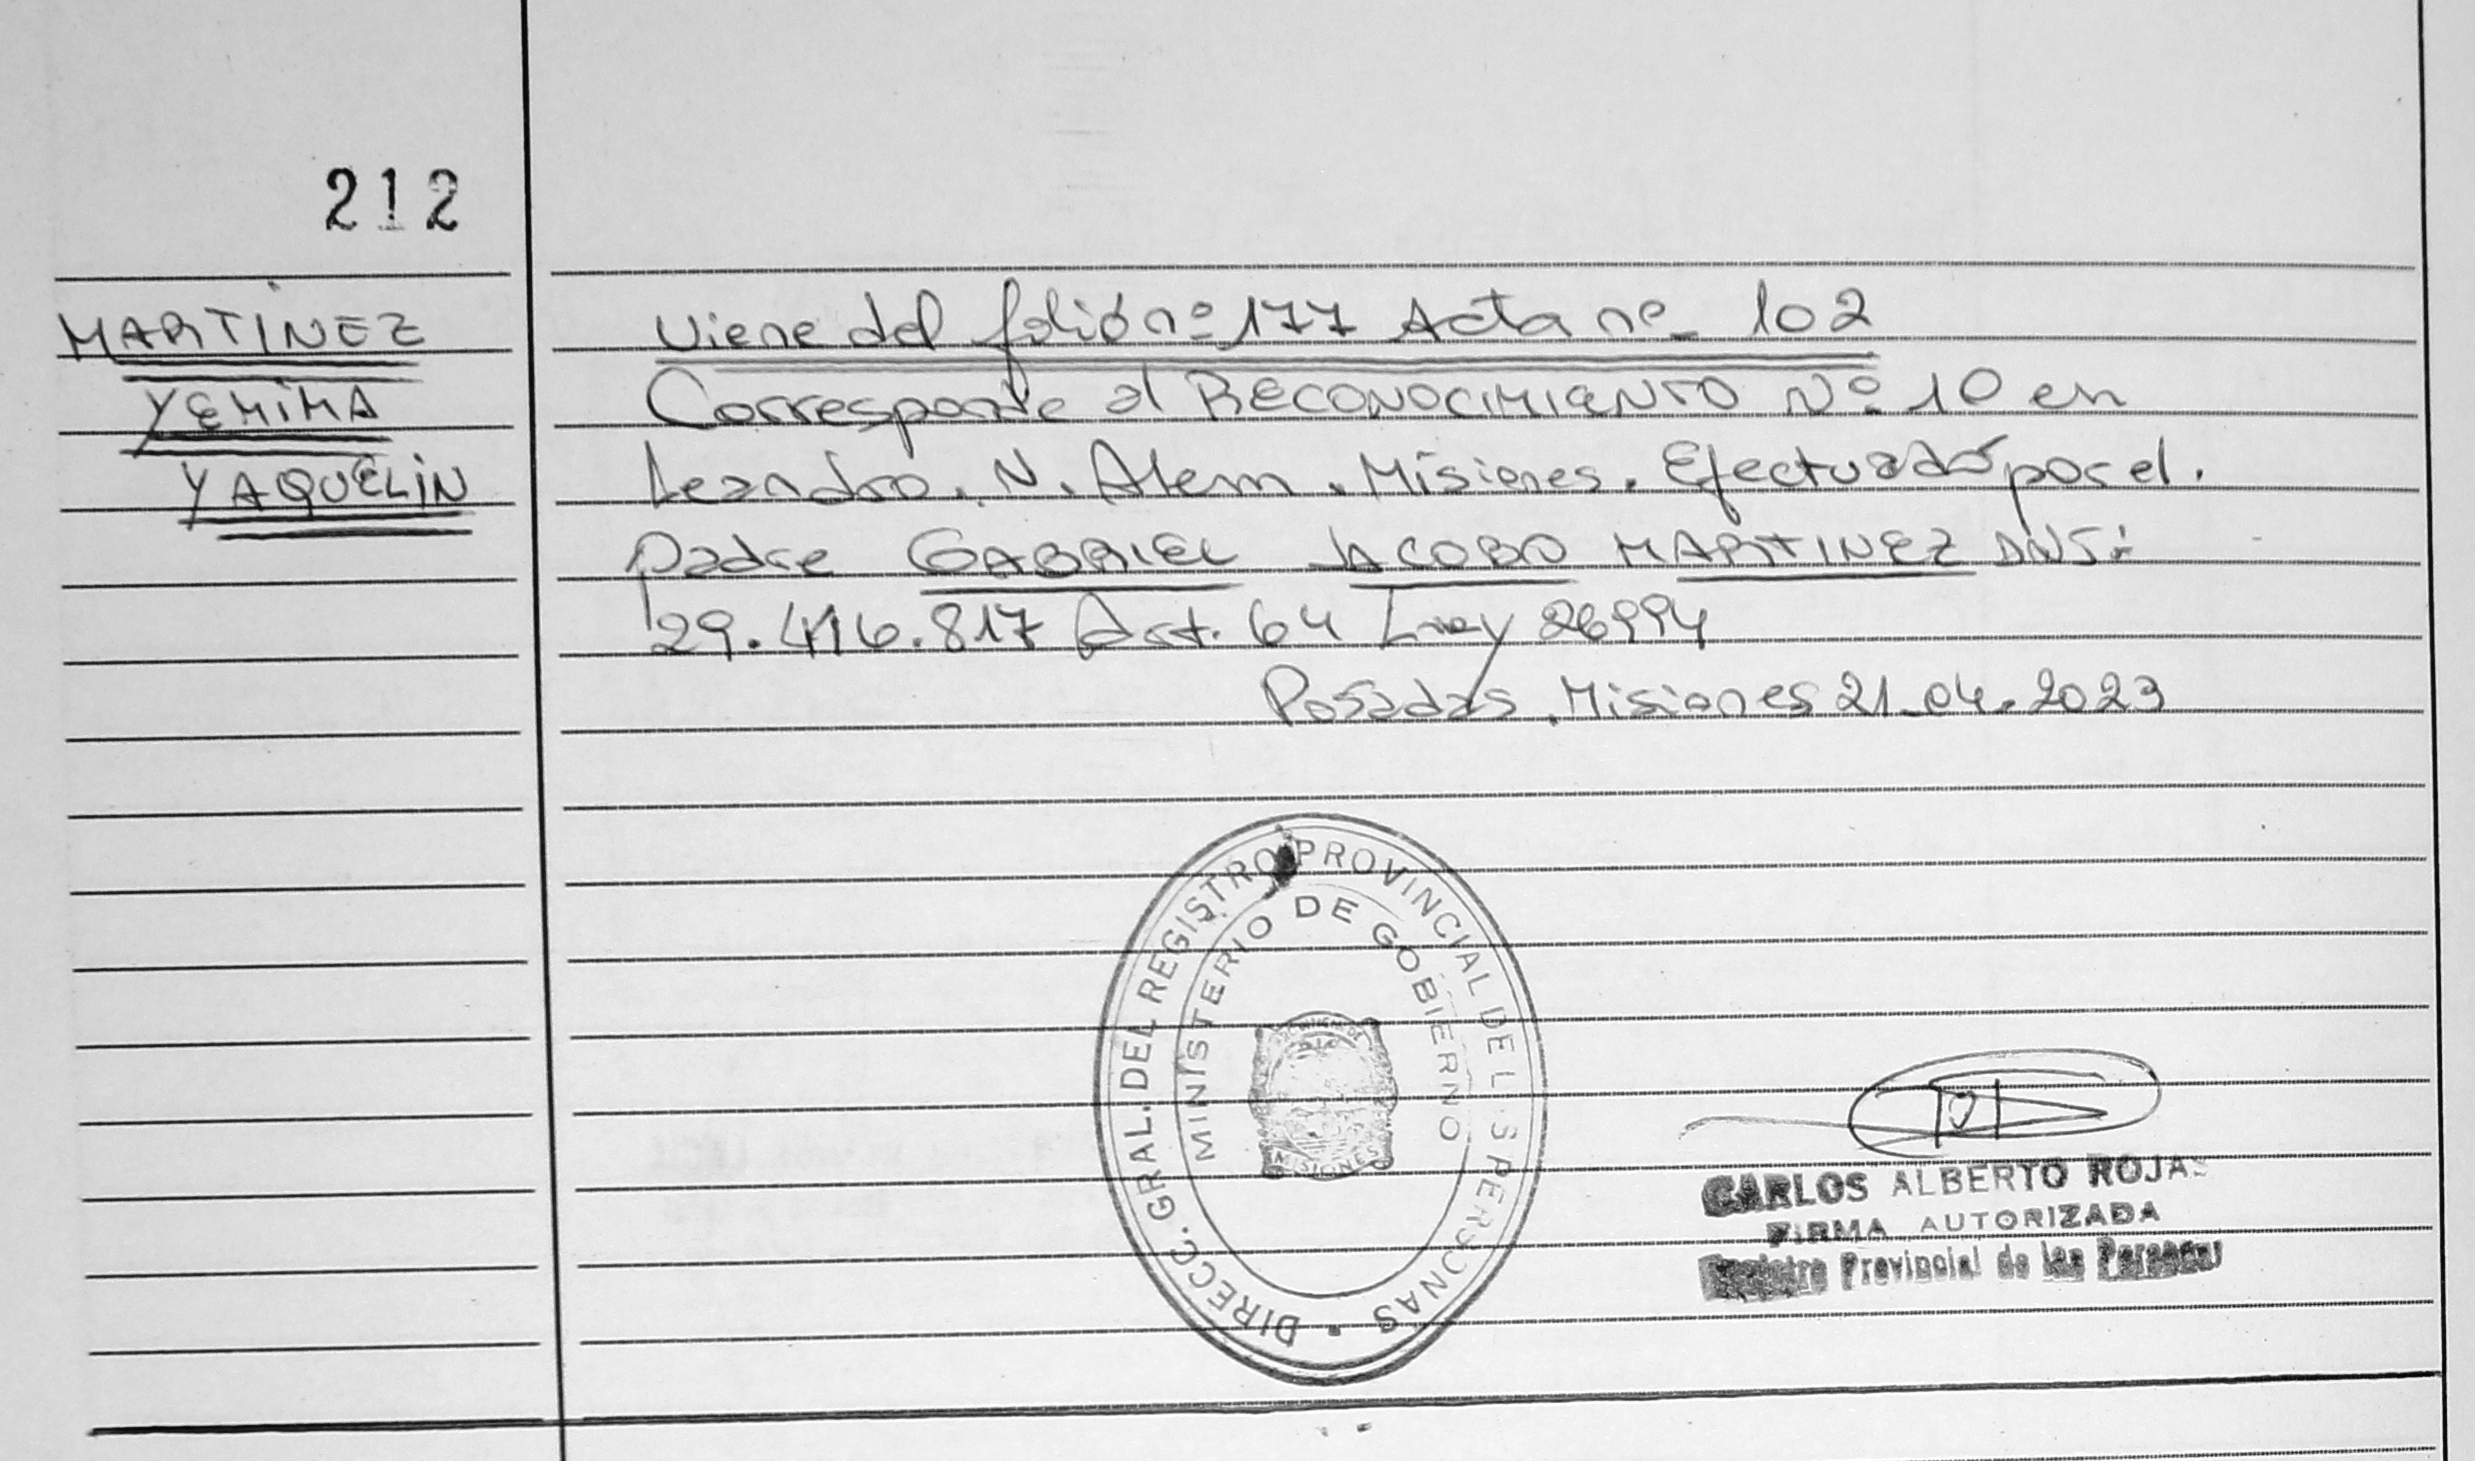 212
MARTINEZ
YEMIMA
YAQUELIN
Viene del folió nº 177 Acta nº 102
Corresponde al RECONOCIMIENTO Nº 10 en
Leandro. N. Alem. Misiones. Efectuado por el.
Padre GABRIEL JACOBO MARTINEZ DNI:
29.416.817 Art. 64 Ley 26994
Posadas. Misiones 21-04-2023
DIRECC. GRAL. DEL REGISTRO PROVINCIAL DE L S PERSONAS
MINISTERIO DE GOBIERNO
MISIONES
CARLOS ALBERTO ROJAS
FIRMA AUTORIZADA
Registro Provincial de las Personas